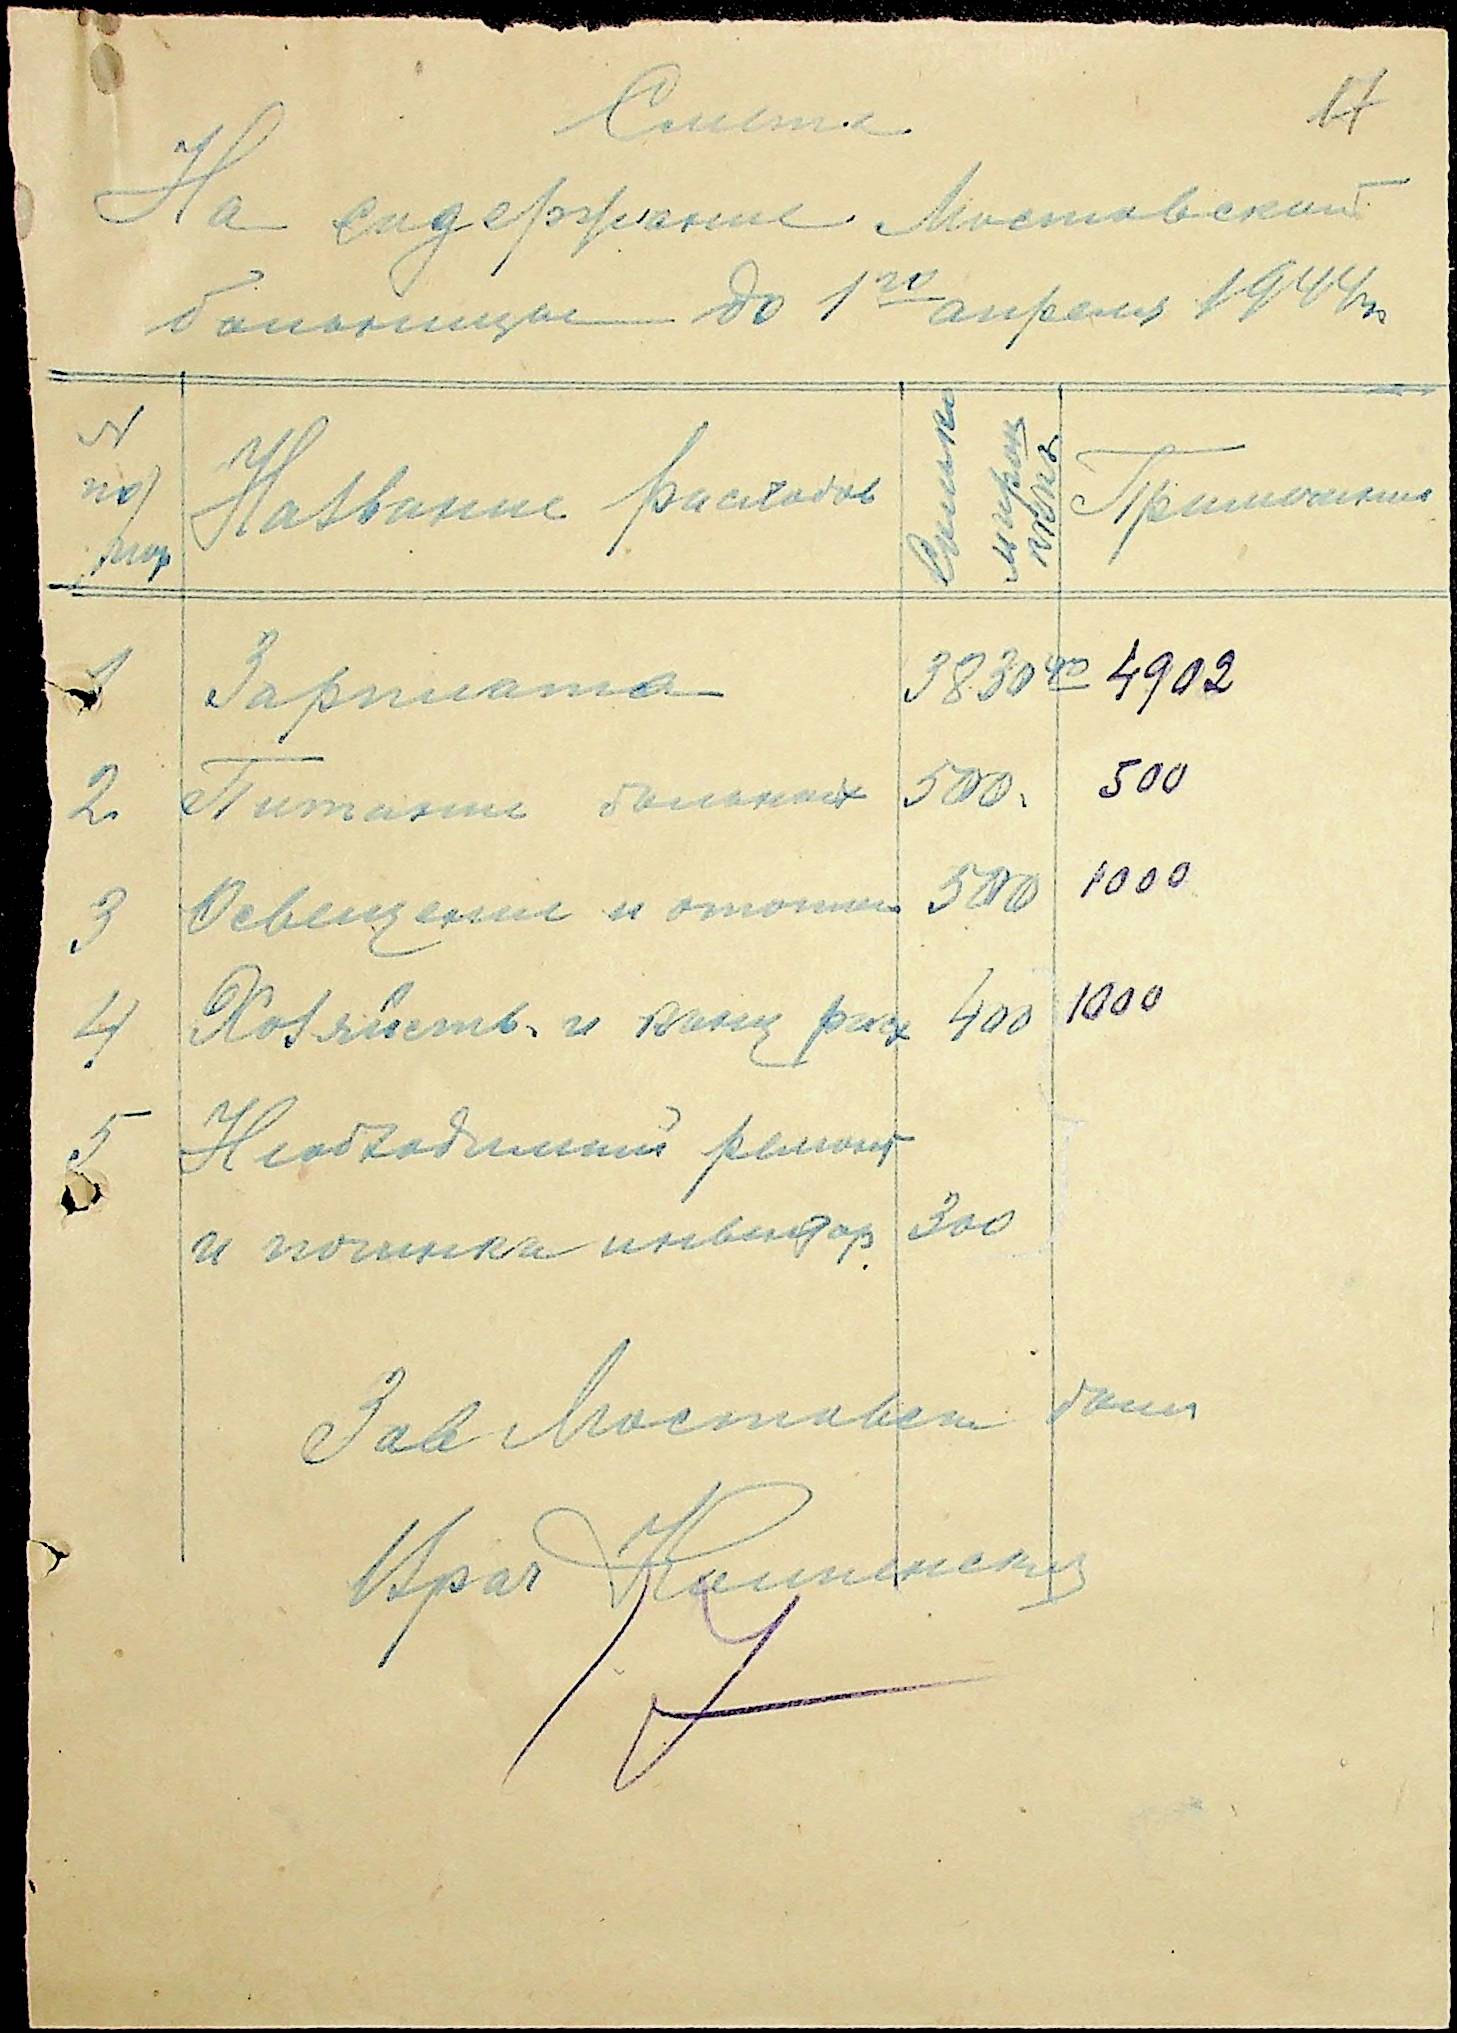 17
Смета
На содержание Мостовской
больницы до 1го апреля 1944г.
N
по
пор
Название расходов
Сколько
Примечание
1 Зарплата 3830 40 4902
2 Питание больных 500. 500
3 Освещение и отопл 500 1000
4 Хозяйств. и канц расх 400 1000
5 Необходимый ремонт
и починка инвентар 300
Зав Мостовск больн
Врач